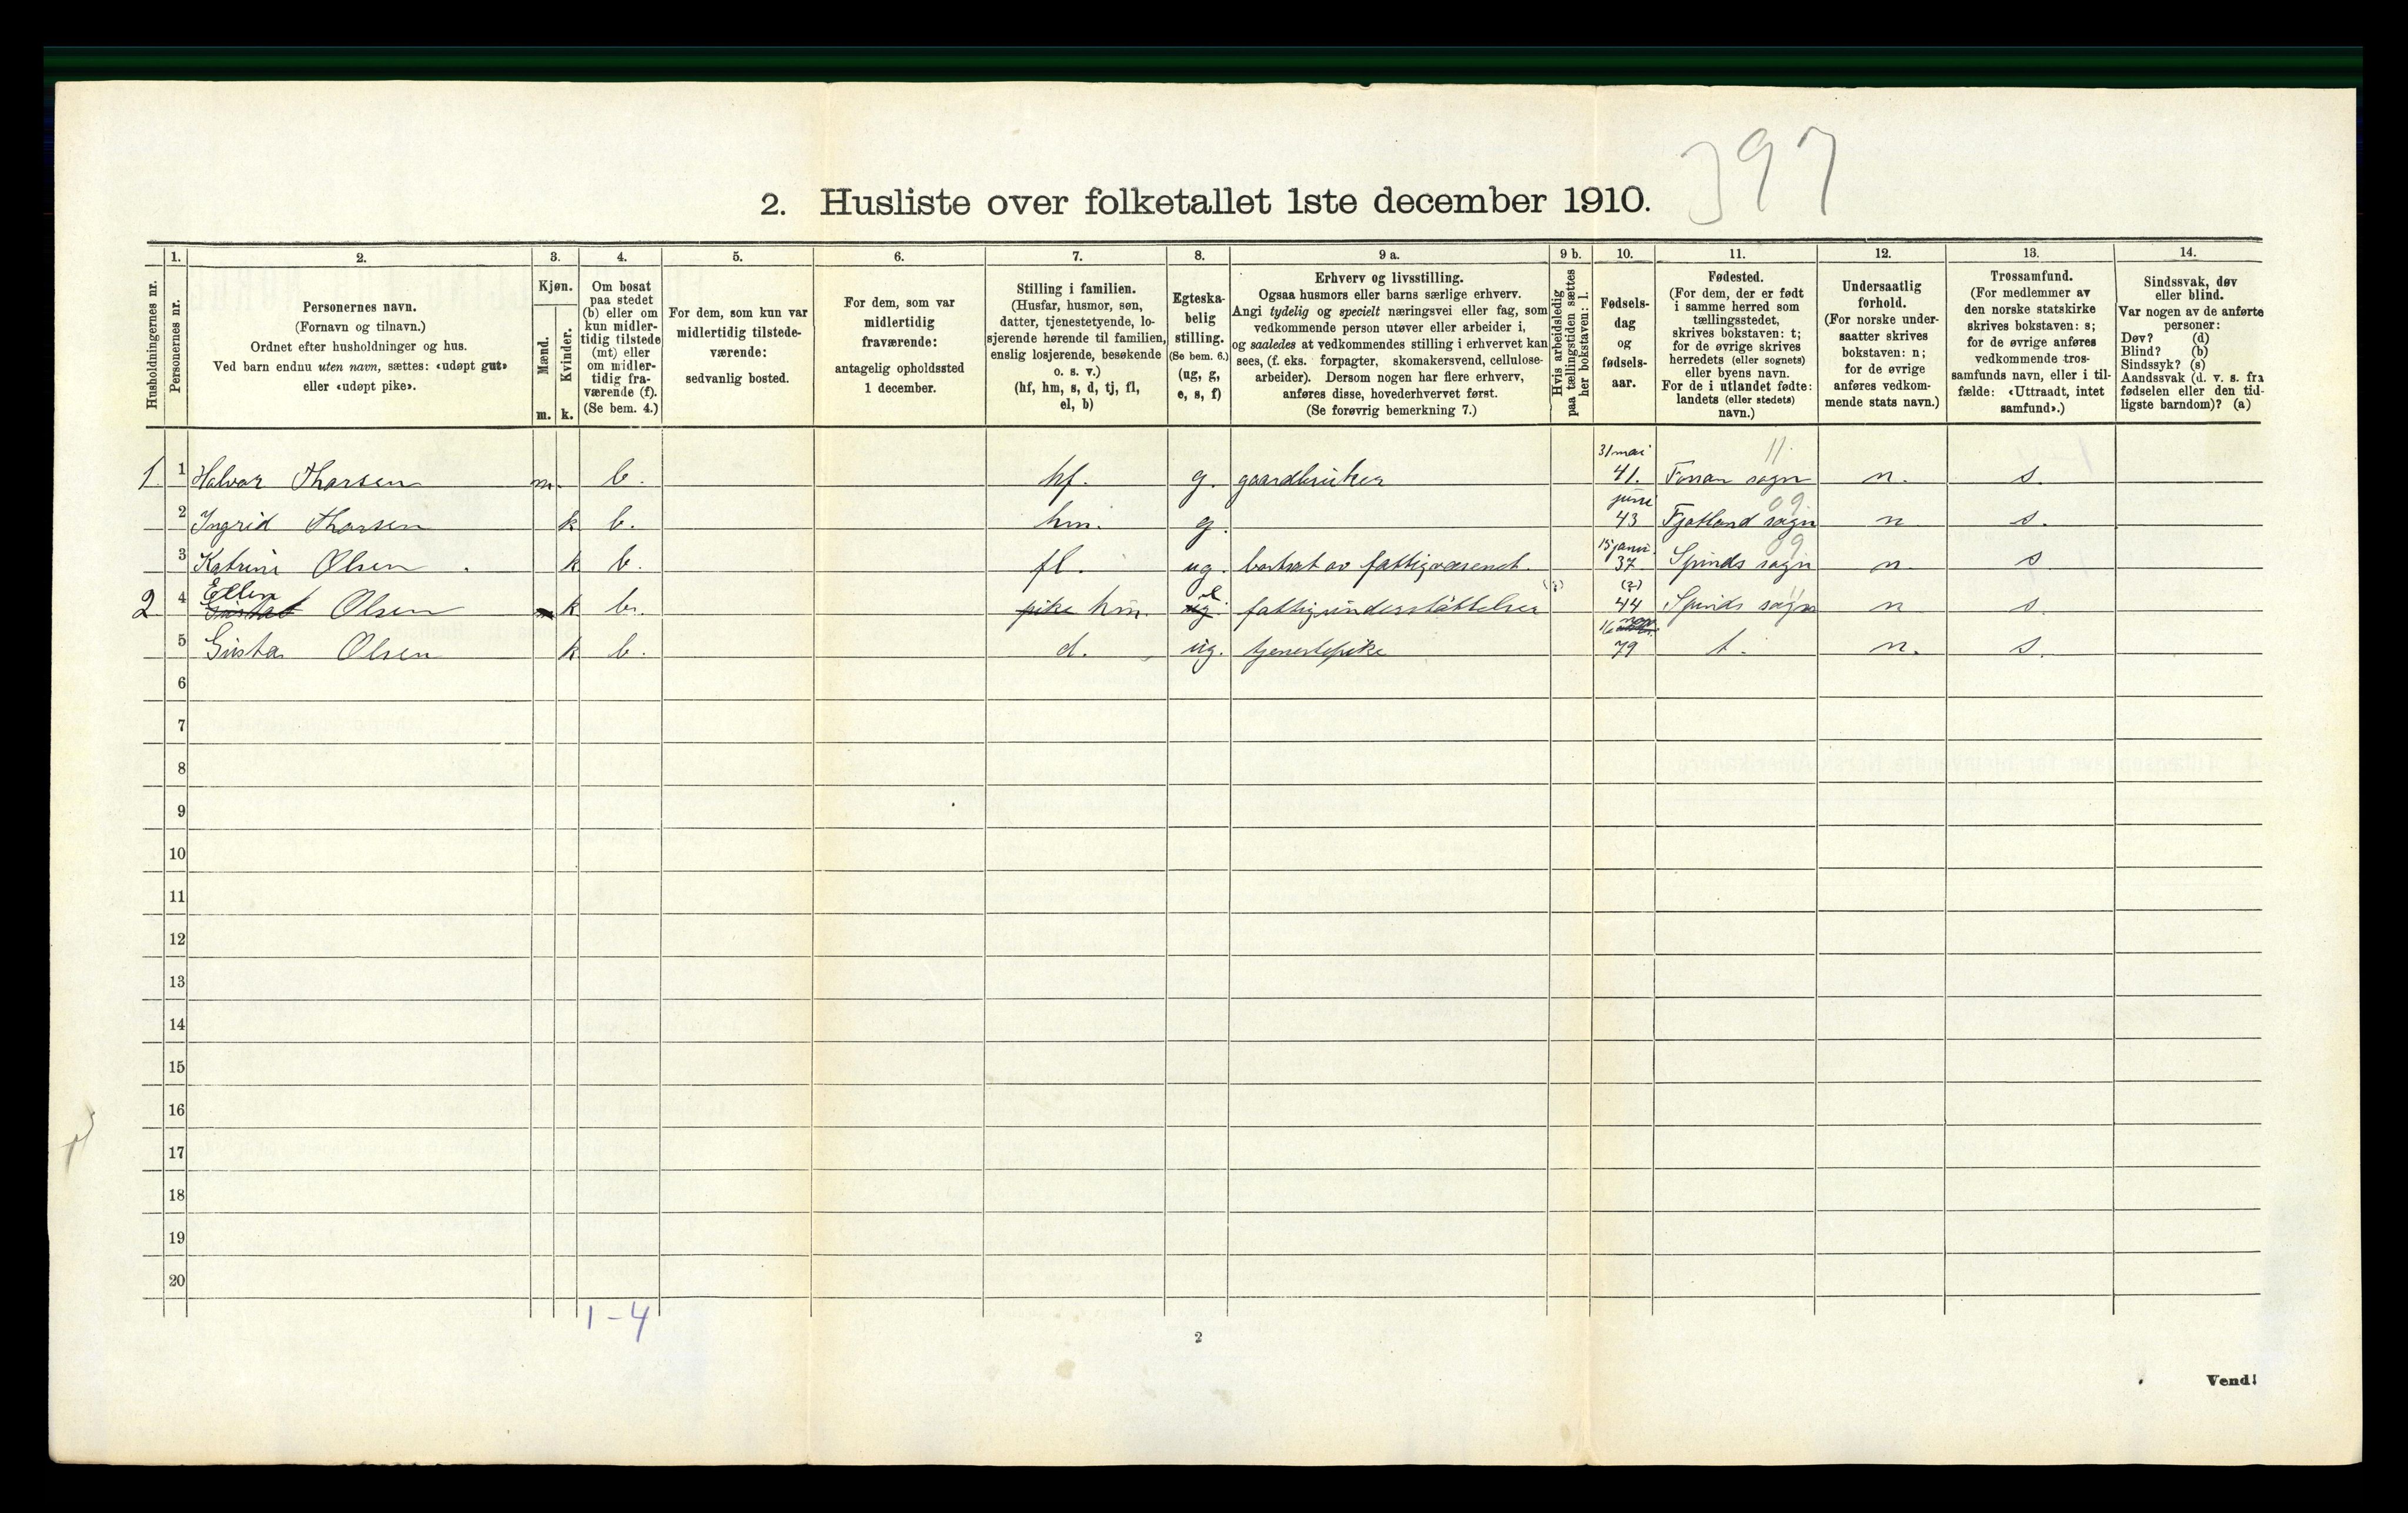 397
2. Husliste over folketallet 1ste december 1910.
Husholdningernes nr.
1.
Personernes nr.
2.
Personernes navn.
(Fornavn og tilnavn.)
Ordnet efter husholdninger og hus.
Ved barn endnu uten navn, sættes: «udøpt gut»
eller «udøpt pike».
3.
Kjøn.
Mænd.
Kvinder.
m. k.
4.
Om bosat
paa stedet
(b) eller om
kun midler-
tidig tilstede
(mt) eller
om midler-
tidig fra-
værende (f).
(Se bem. 4.)
5.
For dem, som kun var
midlertidig tilstede-
værende:
sedvanlig bosted.
6.
For dem, som var
midlertidig
fraværende:
antagelig opholdssted
1 december.
7.
Stilling i familien.
(Husfar, husmor, søn,
datter, tjenestetyende, lo-
sjerende hørende til familien,
enslig losjerende, besøkende
o. s. v.)
(hf, hm, s, d, tj, fl,
el, b)
8.
Egteska-
belig
stilling.
(Se bem. 6.)
(ug, g,
e, s, f)
9 a.
Erhverv og livsstilling.
Ogsaa husmors eller barns særlige erhverv.
Angi tydelig og specielt næringsvei eller fag, som
vedkommende person utøver eller arbeider i,
og saaledes at vedkommendes stilling i erhvervet kan
sees, (f. eks. forpagter, skomakersvend, cellulose-
arbeider). Dersom nogen har flere erhverv,
anføres disse, hovederhvervet først.
(Se forøvrig bemerkning 7.)
9 b.
Hvis arbeidsledig
paa tællingstiden sættes
her bokstaven: l.
10.
Fødsels-
dag
og
fødsels-
aar.
11.
Fødested.
(For dem, der er født
i samme herred som
tællingsstedet,
skrives bokstaven: t;
for de øvrige skrives
herredets (eller sognets)
eller byens navn.
For de i utlandet fødte:
landets (eller stedets)
navn.)
12.
Undersaatlig
forhold.
(For norske under-
saatter skrives
bokstaven: n;
for de øvrige
anføres vedkom-
mende stats navn.)
13.
Trossamfund.
(For medlemmer av
den norske statskirke
skrives bokstaven: s;
for de øvrige anføres
vedkommende tros-
samfunds navn, eller i til-
fælde: «Uttraadt, intet
samfund».)
14.
Sindssvak, døv
eller blind.
Var nogen av de anførte
personer:
Døv? (d)
Blind? (b)
Sindssyk? (s)
Aandssvak (d. v. s. fra
fødselen eller den tid-
ligste barndom)? (a)
1. 1 Halvar Thorsen m. b. hf. g. gaardbruker 31 mai 41. sogn 11. n. s.
2 Ingrid Thorsen k b. hm. g. juni 43 Fjotland sogn 09 n s.
3 Katrine Olsen k b. fl. ug. bortsat av fattigvæsenet. 15 janu. 37. Spinds sogn 09 n. s
2 4 Ellen Olsen k b. pike hm. ug. fattigunderstøttelse (?) 44 Spinds sogn 11 n s.
5 Gusta Olsen k b. d. ug. tjenestepike 16 nov. 79 t. n. s.
6
7
8
9
10
11
12
13
14
15
16
17
18
19
20
1-4
2
Vend!